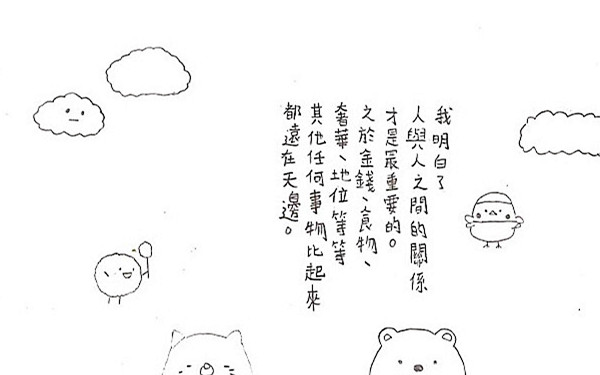 我明白了
人與人之間的關係
才是最重要的。
之於金錢、食物、
奢華、地位等等
其他任何事物比起來
都遠在天邊。